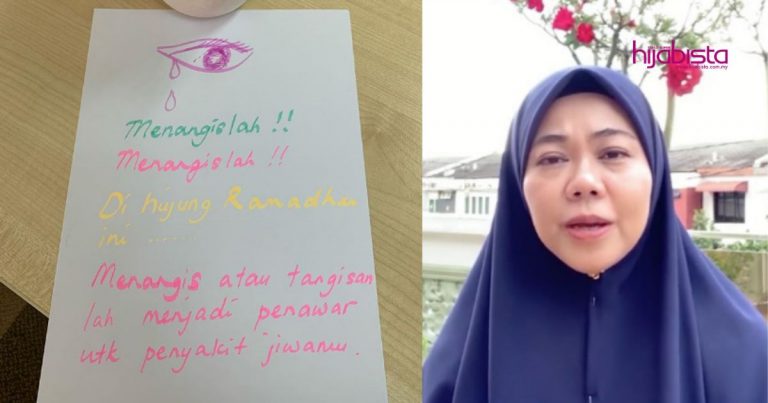 Menangislah !!
Menangislah !!
Di hujung Ramadhan
ini ......
Menangis atau tangisan
lah menjadi penawar
utk penyakit jiwamu.
hijabista